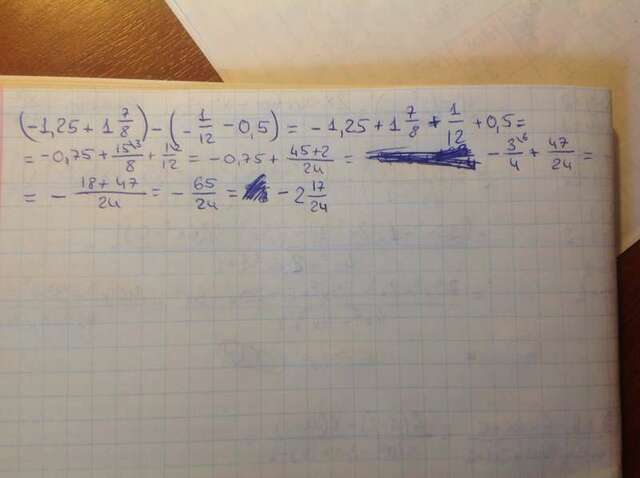 (-1,25 + 1 7/8) - (- 1/12 - 0,5) = - 1,25 + 1 7/8 + 1/12 + 0,5 =
= - 0,75 + 15^3/8 + 1^2/12 = - 0,75 + 45+2/24 = - 3^6/4 + 47/24 =
= - 18+47/24 = - 65/24 = - 2 17/24